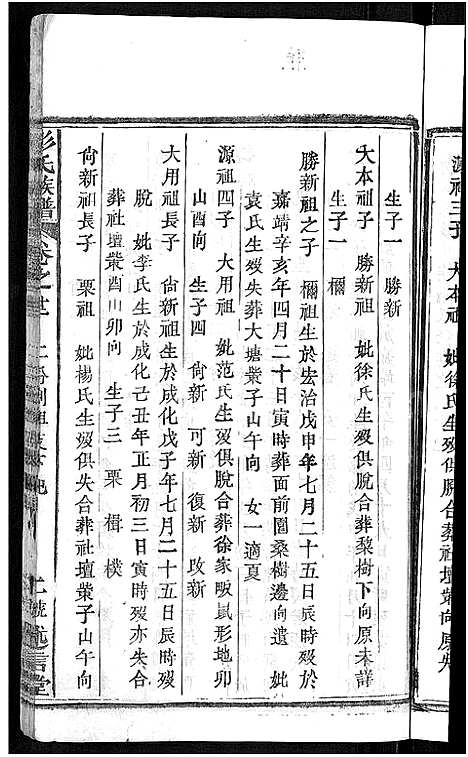 源祖三子　大本祖　妣徐氏生歿俱脫合葬社壇𣗳向原失
生子一　勝新
大本祖子　勝新祖　妣徐氏生歿俱脫合葬黎樹下向原未詳
生子一　禰
勝新祖之子　禰祖生於宏治戊申年七月二十五日辰時歿於
嘉靖辛亥年四月二十日寅時葬面前園桑樹邊向遺　妣
袁氏生歿失葬大塘塋子山午向　女一適夏
源祖四子　大用祖　妣范氏生歿俱脫合葬徐家畈鼠形地卯
山酉向　生子四　尙新　可新　復新　攻新
大用祖長子　尙新祖生於成化戊子年七月二十五日辰時歿
脫　妣李氏生於成化己丑年正月初三日寅時歿亦失合
葬社壇塋酉山卯向　生子三　栗　楫　樸
尙新祖長子　栗祖　妣楊氏生歿俱失合葬社壇塋子山午向
彭氏族譜　卷之　信堂